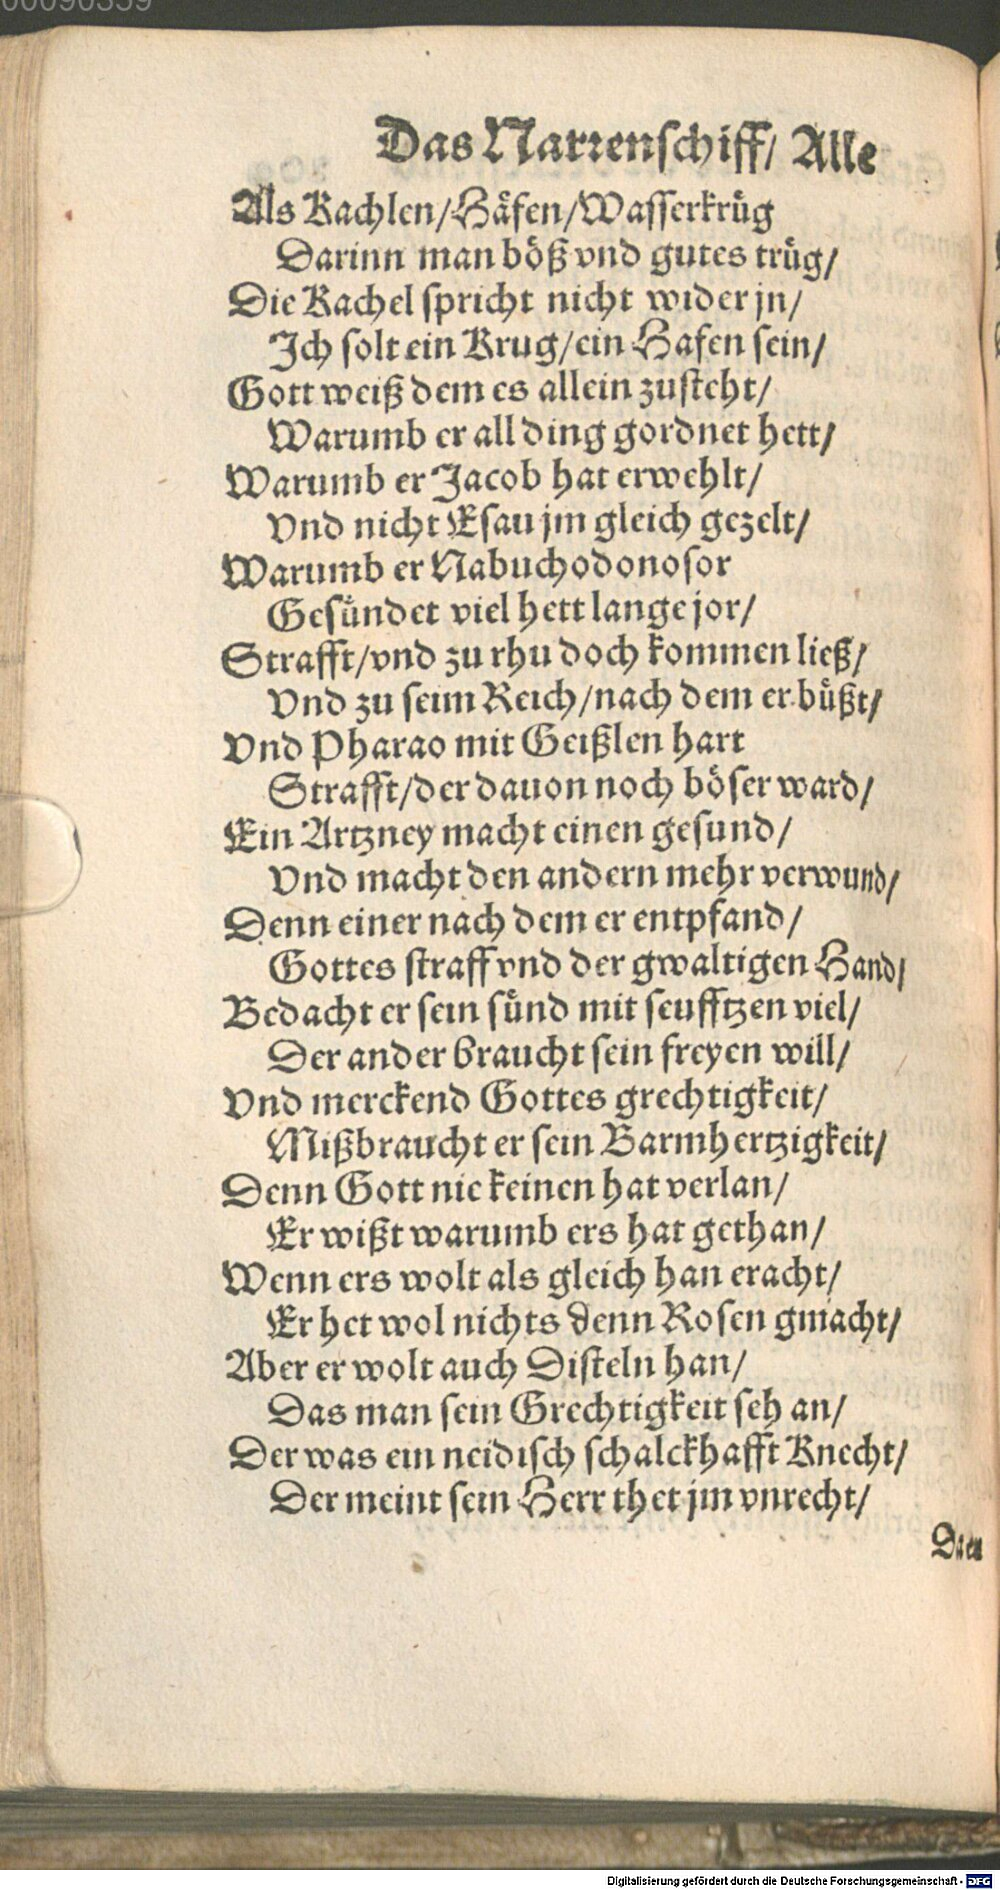 00090359
Das Narrenschiff/ Alle
Als Kachlen/Häfen/Wasserkrüg
Darinn man böß vnd gutes trüg/
Die Kachel spricht nicht wider jn/
Ich solt ein Krug/ein Hafen sein/
Gott weiß dem es allein zusteht/
Warumb er all ding gordnet hett/
Warumb er Jacob hat erwehlt/
Vnd nicht Esau jm gleich gezelt/
Warumb er Nabuchodonosor
Gesündet viel hett lange jor/
Strafft/vnd zu rhu doch kommen ließ/
Vnd zu seim Reich/nach dem er büßt/
Vnd Pharao mit Geißlen hart
Strafft/der dauon noch böser ward/
Ein Artzney macht einen gesund/
Vnd macht den andern mehr verwund/
Denn einer nach dem er entpfand/
Gottes straff vnd der gwaltigen Hand/
Bedacht er sein sünd mit seufftzen viel/
Der ander braucht sein freyen will/
Vnd merckend Gottes grechtigkeit/
Mißbraucht er sein Barmhertzigkeit/
Denn Gott nie keinen hat verlan/
Er wißt warumb ers hat gethan/
Wenn ers wolt als gleich han eracht/
Er het wol nichts denn Rosen gmacht/
Aber er wolt auch Disteln han/
Das man sein Grechtigkeit seh an/
Der was ein neidisch schalckhafft Knecht/
Der meint sein Herr thet jm vnrecht/
Digitalisierung gefördert durch die Deutsche Forschungsgemeinschaft - DFG